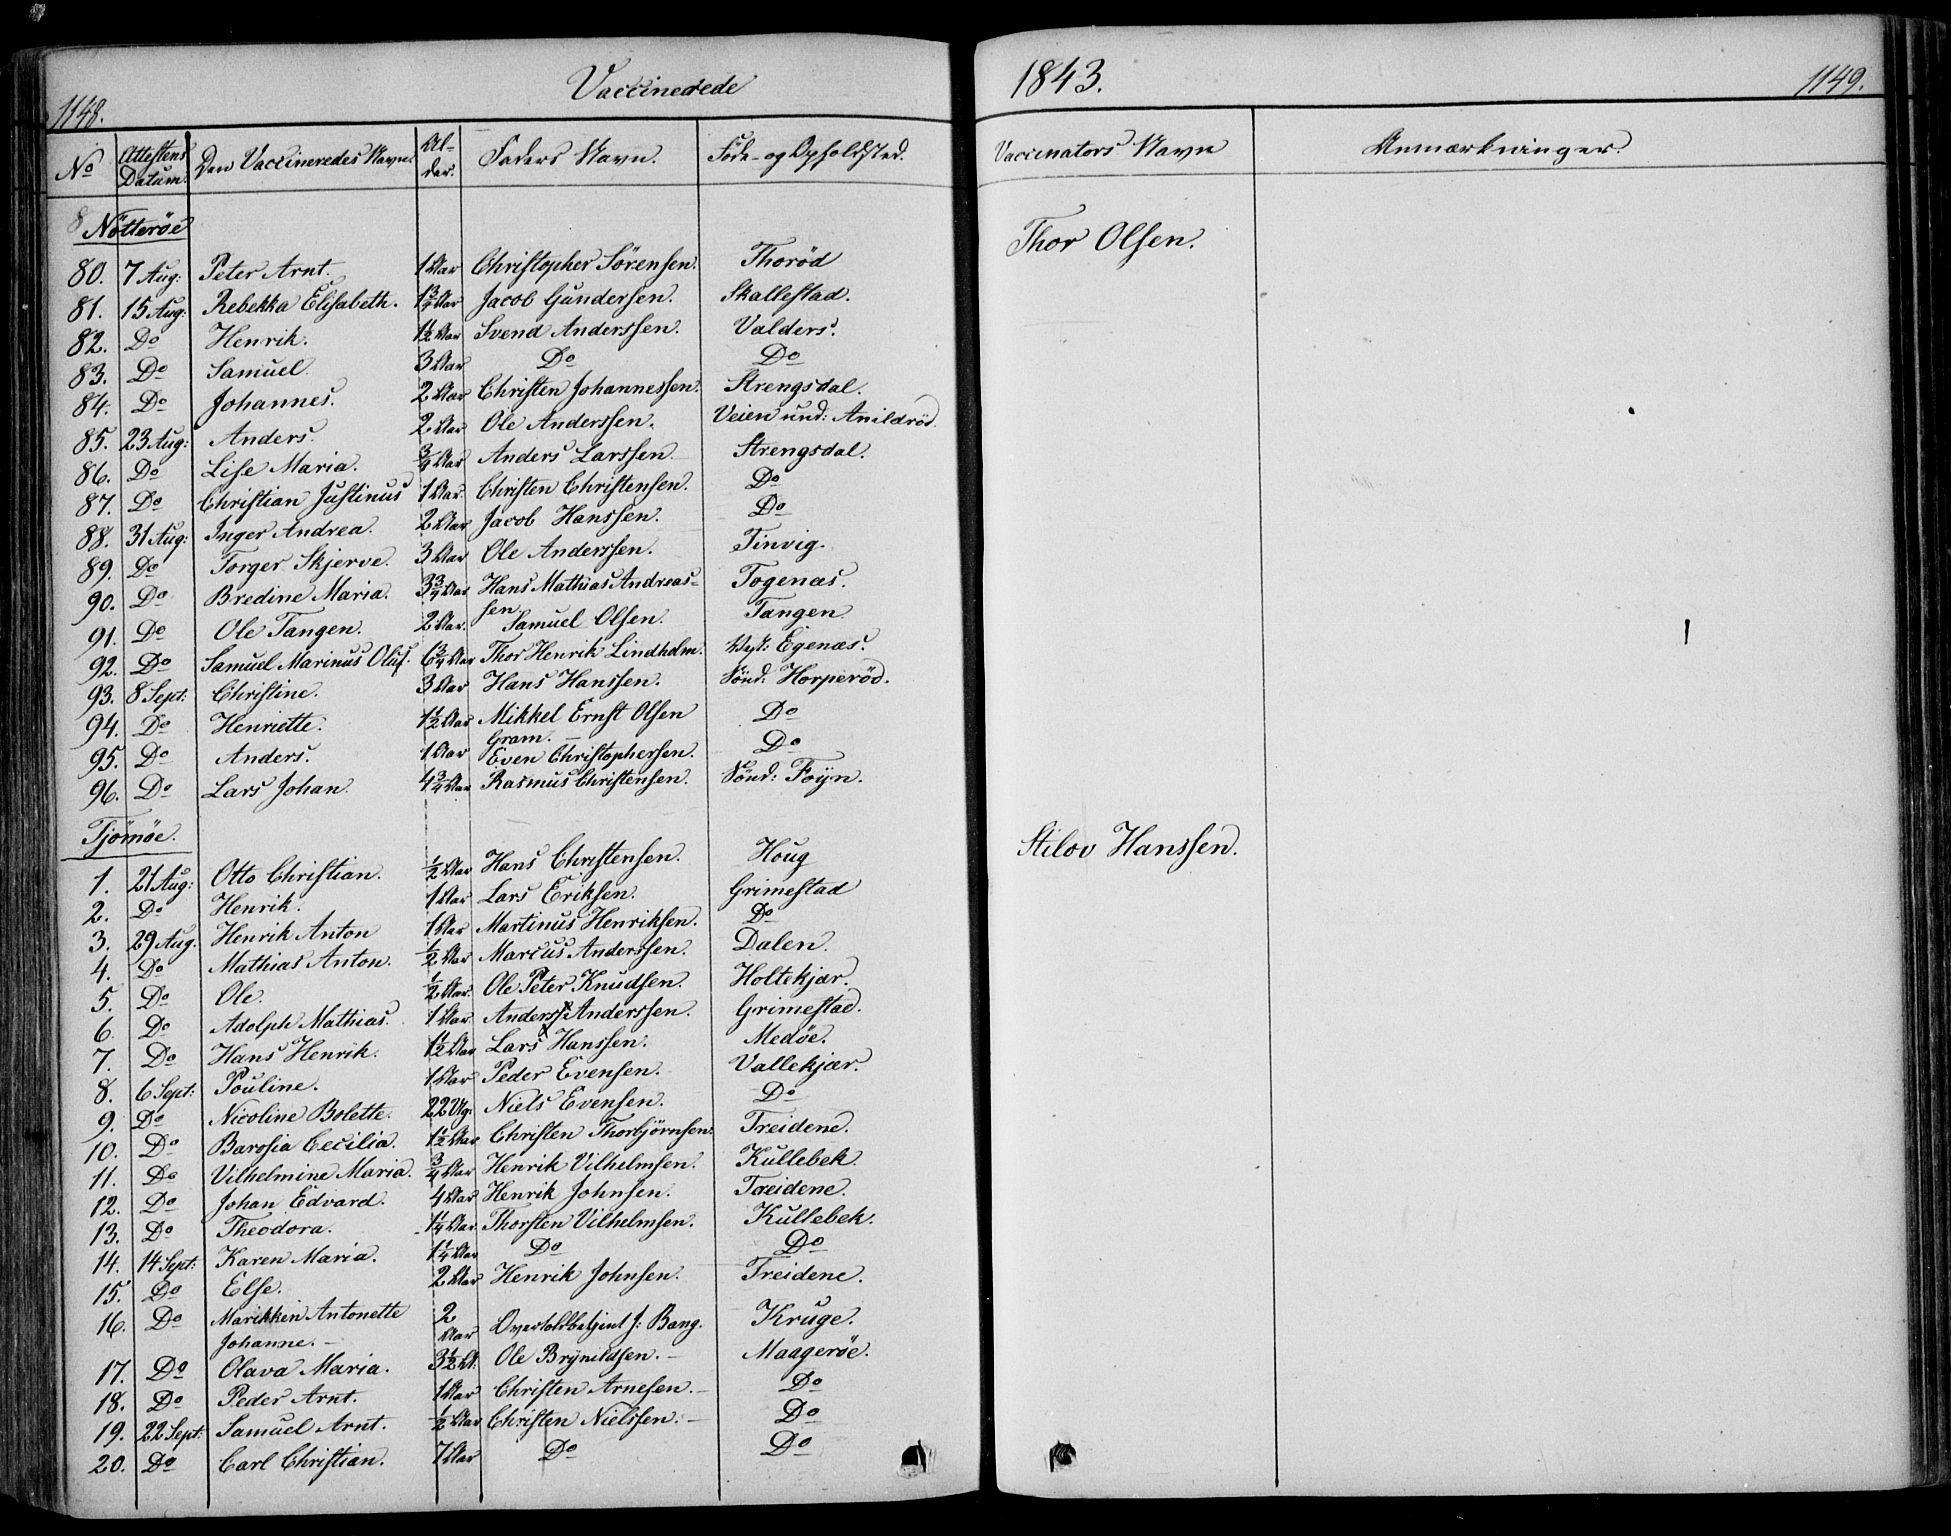 1148. Vaccinerede
No Attestens Datum. Den Vaccineredes Navn. Al-der. Faders Navn. Føde- og Opholdsted.
Nötteröe
80. 7 Aug: Peter Arnt. 1 Aar Christopher Sörensen. Thoröd
81. 15 Aug: Rebekka Elisabeth. 1¾ Aar Jacob Gundersen. Skallestad.
82. Do Henrik. 1½ Aar Svend Anderssen. Valders.
83. Do Samuel. 3 Aar Do Do
84. Do Johannes. 2 Aar Christen Johannessen. Strengsdal.
85. 23 Aug: Anders. 2 Aar Ole Anderssen. Veien und: Anildröd.
86. Do Lise Maria. ¾ Aar Anders Larssen Strengsdal.
87. Do Christian Justinus 1 Aar. Christen Christensen. Do
88. 31 Aug: Inger Andrea. 2 Aar Jacob Hanssen. Do
89. Do Torger Skjerve. 3 Aar Ole Anderssen. Tinvig.
90. Do Bredine Maria. 3¾ Aar Hans Mathias Andreas-
sen Togenæs.
91. Do Ole Tangen. 2 Aar. Samuel Olsen. Tangen
92. Do Samuel Marinus Oluf. 6¾ Aar Thor Henrik Lindholm. Egenæs.
93. 8 Sept: Christine. 3 Aar Hans Hanssen. Sönd: Horperöd.
94. Do Henriette. 1½ Aar Mikkel Ernst Olsen
Gram. Do
95. Do Anders. 1 Aar Even Christophersen. Do
96. Do Lars Johan. 4¾ Aar Rasmus Christensen. Sönd: Foyn.
Tjömöe.
1. 21 Aug: Otto Christian. ½ Aar Hans Christensen. Houg
2. Do Henrik. 1 Aar Lars Eriksen. Grimestad
3. 29 Aug. Henrik Anton 1 Aar Martinus Henriksen. Do
4. Do Mathias Anton. ½ Aar Marcus Anderssen. Dalen.
5. Do Ole. ½ Aar. Ole Peter Knudsen. Holtekjær.
6. Do Adolph Mathias. 1 Aar Anders Anderssen. Grimestad.
7. Do Hans Henrik. 1½ Aar Lars Hanssen. Medöe.
8. 6 Sept: Pouline. 1 Aar Peder Evensen. Vallekjær.
9. Do Nicoline Bolette. 22 Ug. Niels Evensen. Do
10. Do Barosia Cecilia. 1½ Aar Christen Thorbjörnsen. Treidene.
11. Do Vilhelmine Maria. ¾ Aar Henrik Vilhelmsen. Kullebek.
12. Do Johan Edvard. 4 Aar Henrik Johnsen. Treidene.
13. Do Theodora. 1¼ Aar Thorsten Vilhelmsen. Kullebek.
14. 14 Sept: Karen Maria. 1¼ Aar Do Do
15. Do Else. 2 Aar Henrik Johnsen. Treidene.
16. Do Marikken Antonette
Johanne. 2 Aar Overtoldbetjent J: Bang. Kruge.
17. Do Olava Maria. 3½ A. Ole Brynildsen. Maageröe.
18. Do Peder Arnt. 1 Aar Christen Arnesen. Do
19. 22 Sept: Samuel Arnt. ½ Aar Christen Nielssen. Do
20. Do Carl Christian. 7 Aar Do Do
1843. 1149.
Vaccinators Navn Anmærkninger.
Thor Olsen.
Hanssen.